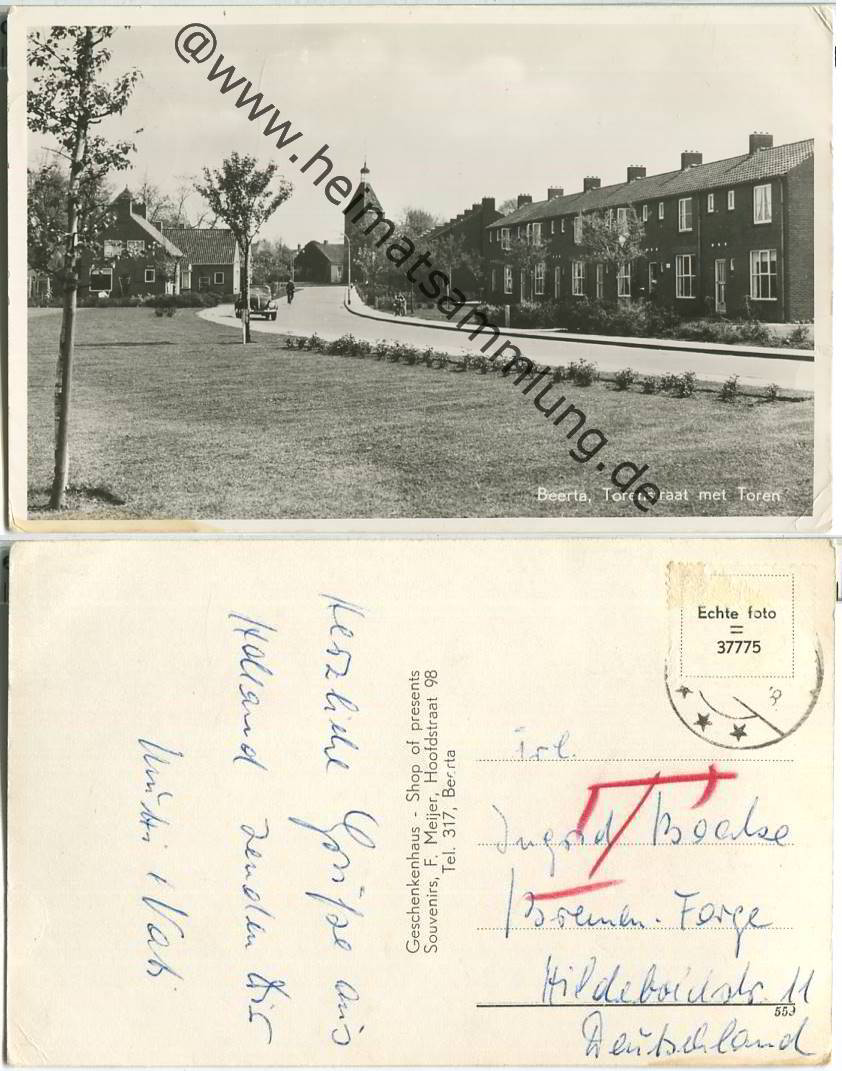 @www.heimatsammlung.de
Beerta, Torenstraat met Toren
Herzliche Grüße aus
Holland senden Dir
Mutti + Vati
Geschenkenhaus - Shop of presents
Souvenirs, F. Meijer, Hoofdstraat 98
Tel. 317, Beerta
Echte foto
=
37775
Frl.
Ingrid
Bremen-Farge
Hildeboldstr. 11
559
Deutschland